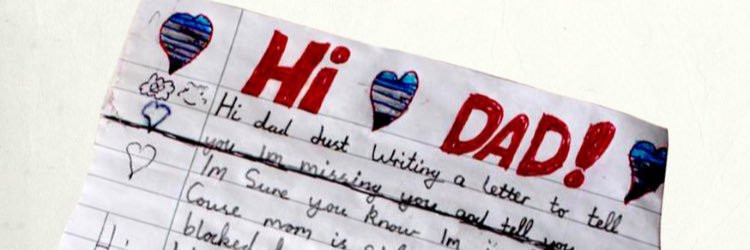 Hi DAD!
Hi dad Just Writing a letter to tell
you Im missing you and tell you
Im Sure you know Im
Couse mom is
blocked
Hi